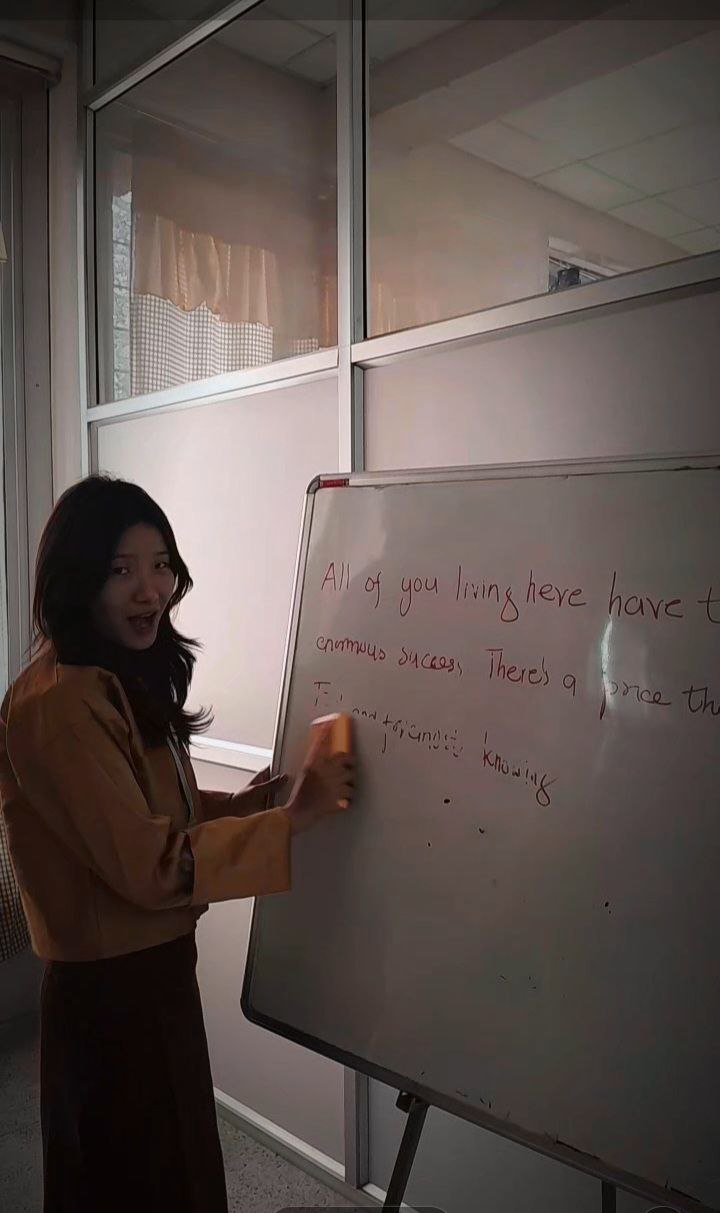 All of you living here have t
enormous success, There's a price th
knowing